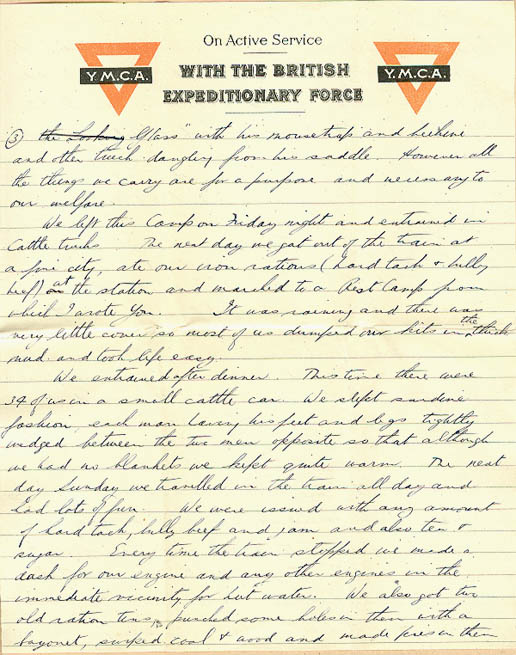 On Active Service
WITH THE BRITISH
EXPEDITIONARY FORCE
Y.M.C.A.
Y.M.C.A.
③ the Looking Glass" with his mousetrap and beehive
and other truck dangling from his saddle. However all
the things we carry are for a purpose and necessary to
our welfare.
We left this Camp on Friday night and entrained in
Cattle trucks. The next day we got out of the train at
a fine city, ate our iron rations (hard tack & bully
beef) at the station and marched to a Rest Camp from
which I wrote you. It was raining and there was
very little cover so most of us dumped our kits in the thick
mud and took life easy.
We entrained after dinner. This time there were
34 of us in a small cattle car. We slept sardine
fashion, each man having his feet and legs tightly
wedged between the two men opposite so that although
we had no blankets we kept quite warm. The next
day Sunday we travelled in the train all day and
had lots of fun. We were issued with any amount
of hard tack, bully beef and jam and also tea &
sugar. Every time the train stopped we made a
dash for our engine and any other engines in the
immediate vicinity for hot water. We also got two
old ration tins, punched some holes in them with a
bayonet, swiped coal & wood and made fires in them